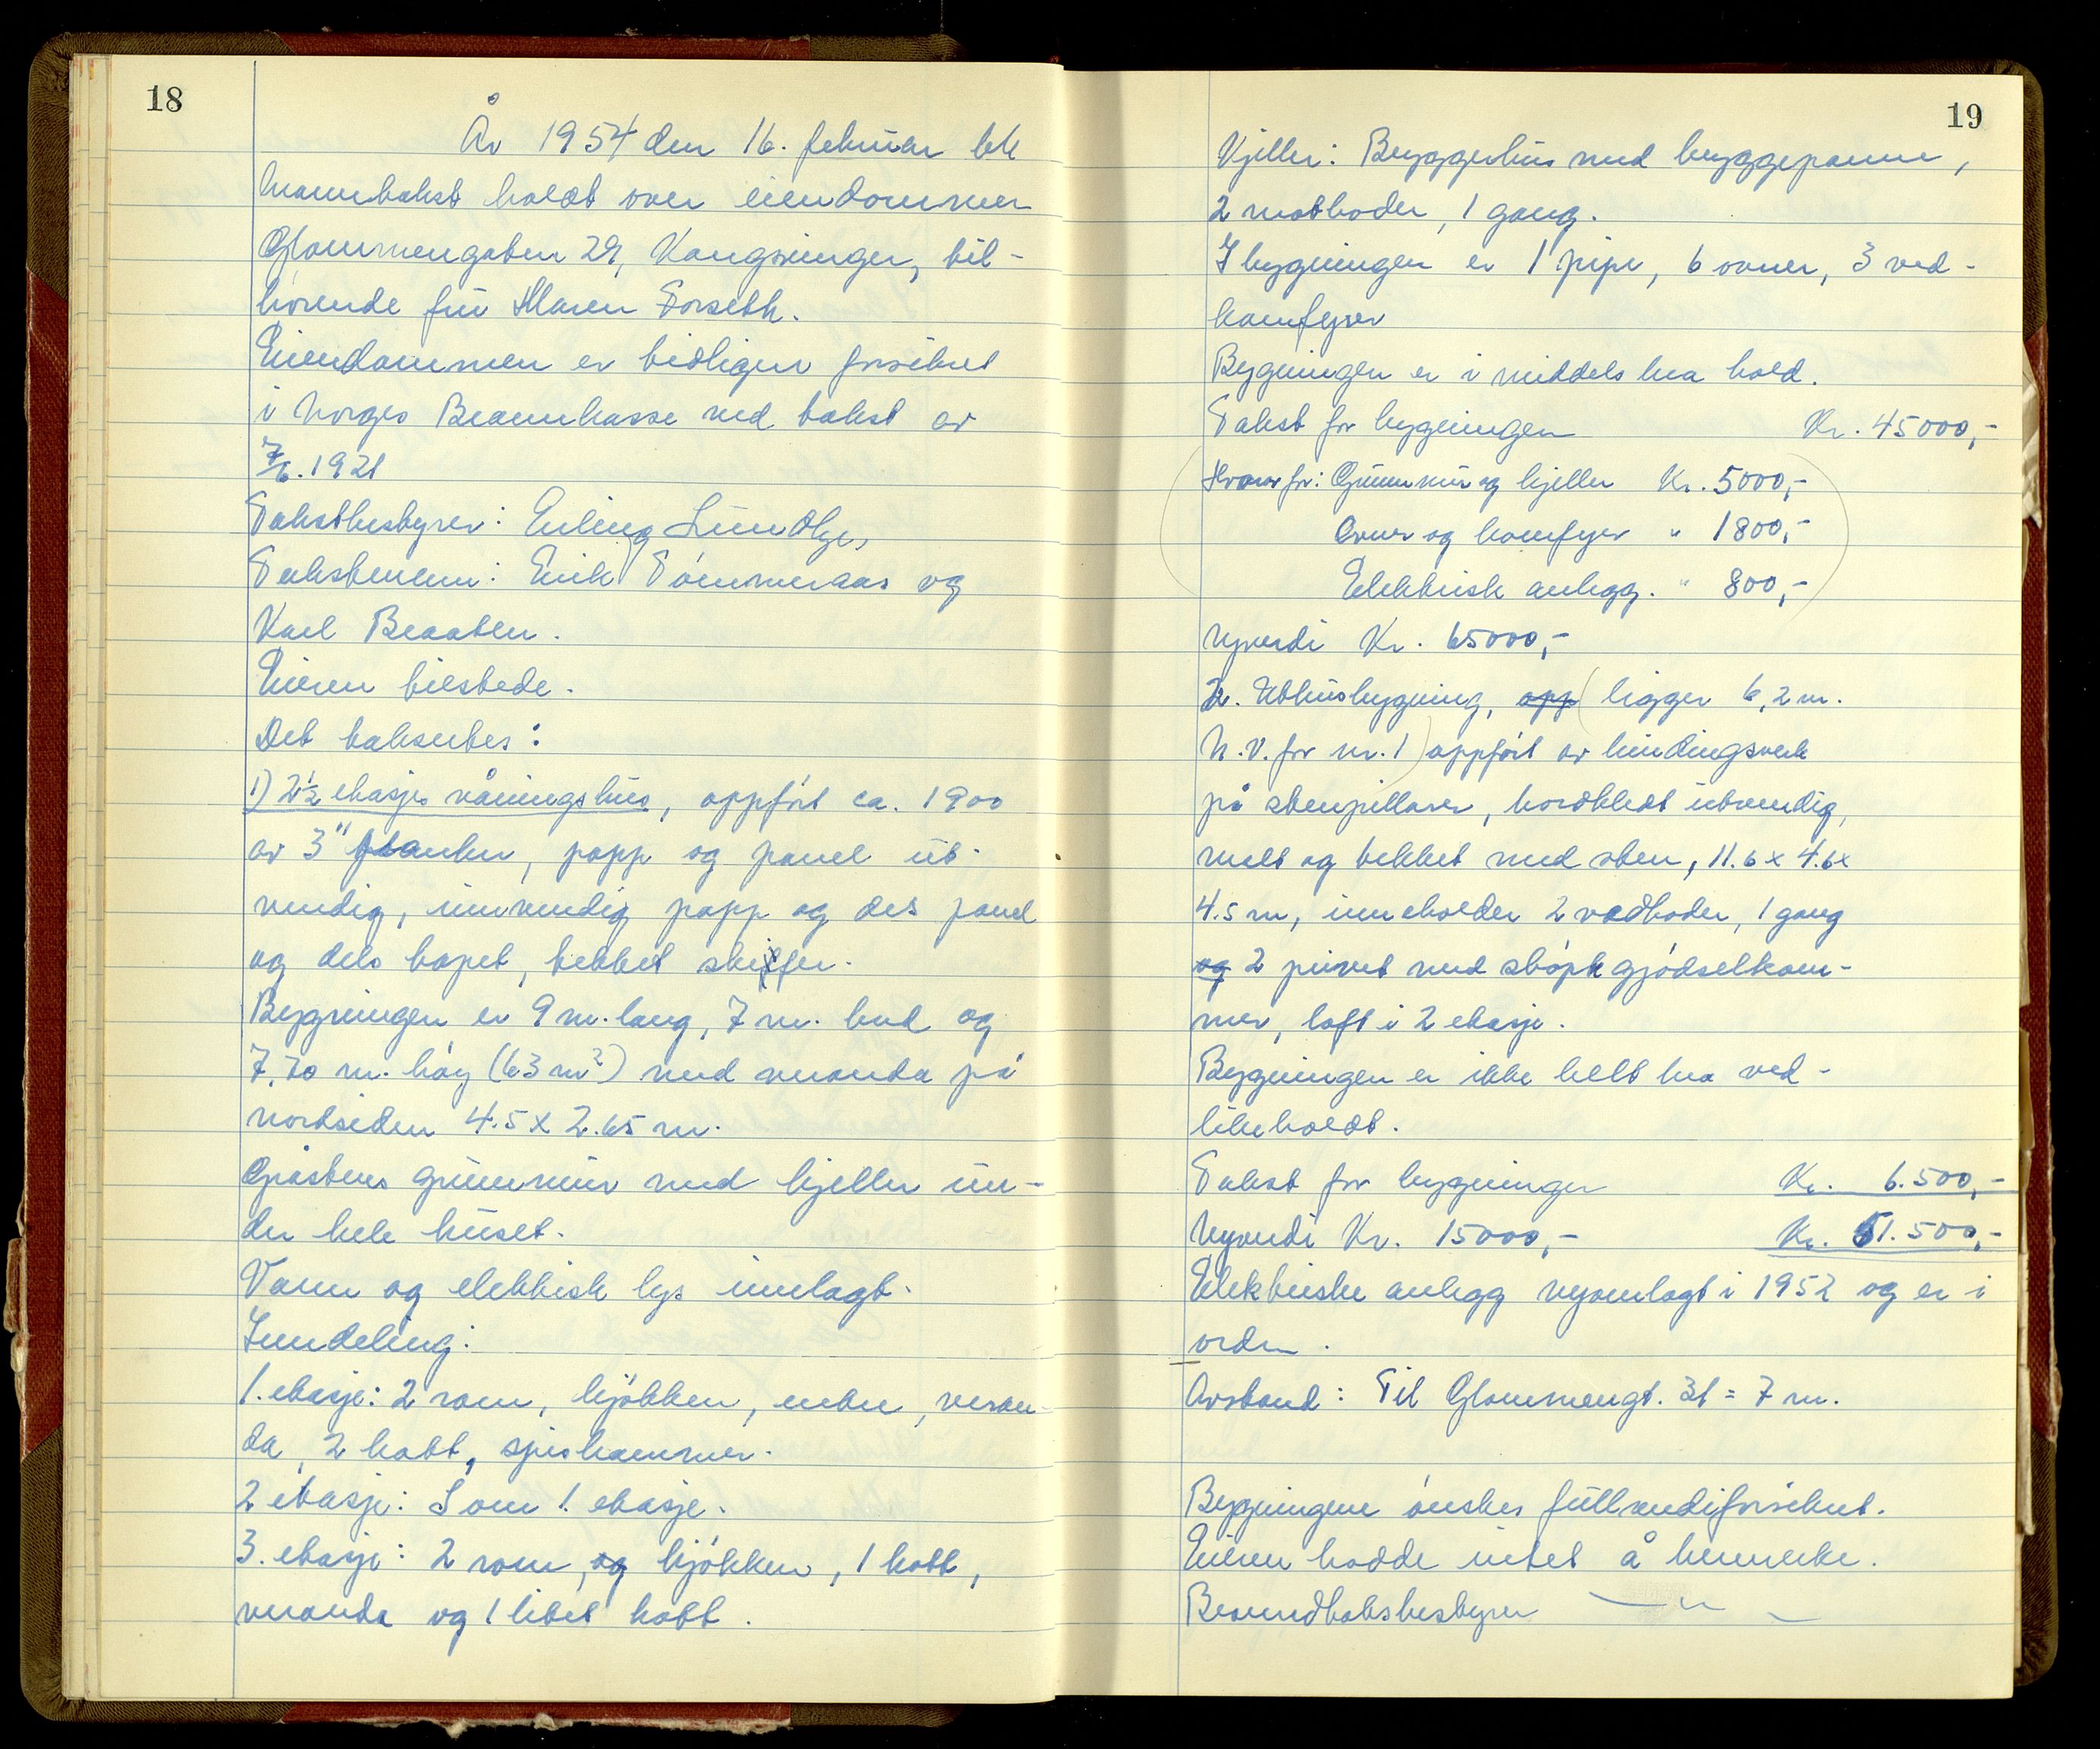 18
År 1954 den 16. februar ble
branntakst holdt over eiendommen
Glommengaten 29, Kongsvinger, til-
hörende fru Maren Forseth.
Eiendommen er tidligere forsikret
i Norges Brannkasse ved takst av
7/6. 1921
Takstbestyrer: Erling Lundby,
Takstmenn: Erik Tömmeraas og
Karl Braaten.
Eieren tilstede.
Det takseres:
1) 2 1/2 etasjes våningshus, oppfört ca. 1900
av 3" planker, papp og panel ut-
vendig, innvendig papp og dels panel
og dels tapet, tekket skiffer.
Bygningen er 9 m. lang, 7 m. bred og
7,70 m. höy (63 m²) med veranda på
nordsiden 4.5 x 2.65 m.
Gråstens grunnmur med kjeller un-
der hele huset.
Vann og elektrisk lys innlagt.
Inndeling:
1. etasje: 2 rom, kjökken, entre, veran-
da, 2 kott, spiskammer.
2 etasje: Som 1. etasje.
3. etasje: 2 rom, og kjökken, 1 kott,
veranda og 1 litet kott.
19
Kjeller: Bryggerhus med bryggepanne,
2 matboder, 1 gang.
I bygningen er 1 pipe, 6 ovner, 3 ved-
komfyrer
Bygningen er i middels bra hold.
Takst for bygningen Kr. 45000,-
Hvorav for: Grunnmur og kjeller Kr. 5000,-
Ovner og komfyrer " 1800,-
Elektrisk anlegg. " 800,-
Nyverdi Kr. 65000,-
2. Uthusbygning, opp (ligger 6,2 m.
N.V. for nr. 1) oppfört av bindingsverk
på stenpillarer, bordkledt utvendig,
malt og tekket med sten, 11.6 x 4.6 x
4.5 m, inneholder 2 vedboder, 1 gang
og 2 privet med stöpt gjödselkam-
mer, loft i 2 etasje.
Bygningen er ikke helt bra ved-
likeholdt.
Takst for bygningen Kr. 6.500,-
Nyverdi Kr. 15000,- Kr. 51.500,-
Elektriske anlegg nyomlagt i 1952 og er i
orden.
Avstand: Til Glommengt. 31 = 7 m.
Bygningene önskes fullverdiforsikret.
Eieren hadde intet å bemerke.
Branntakstbestyrer — " —